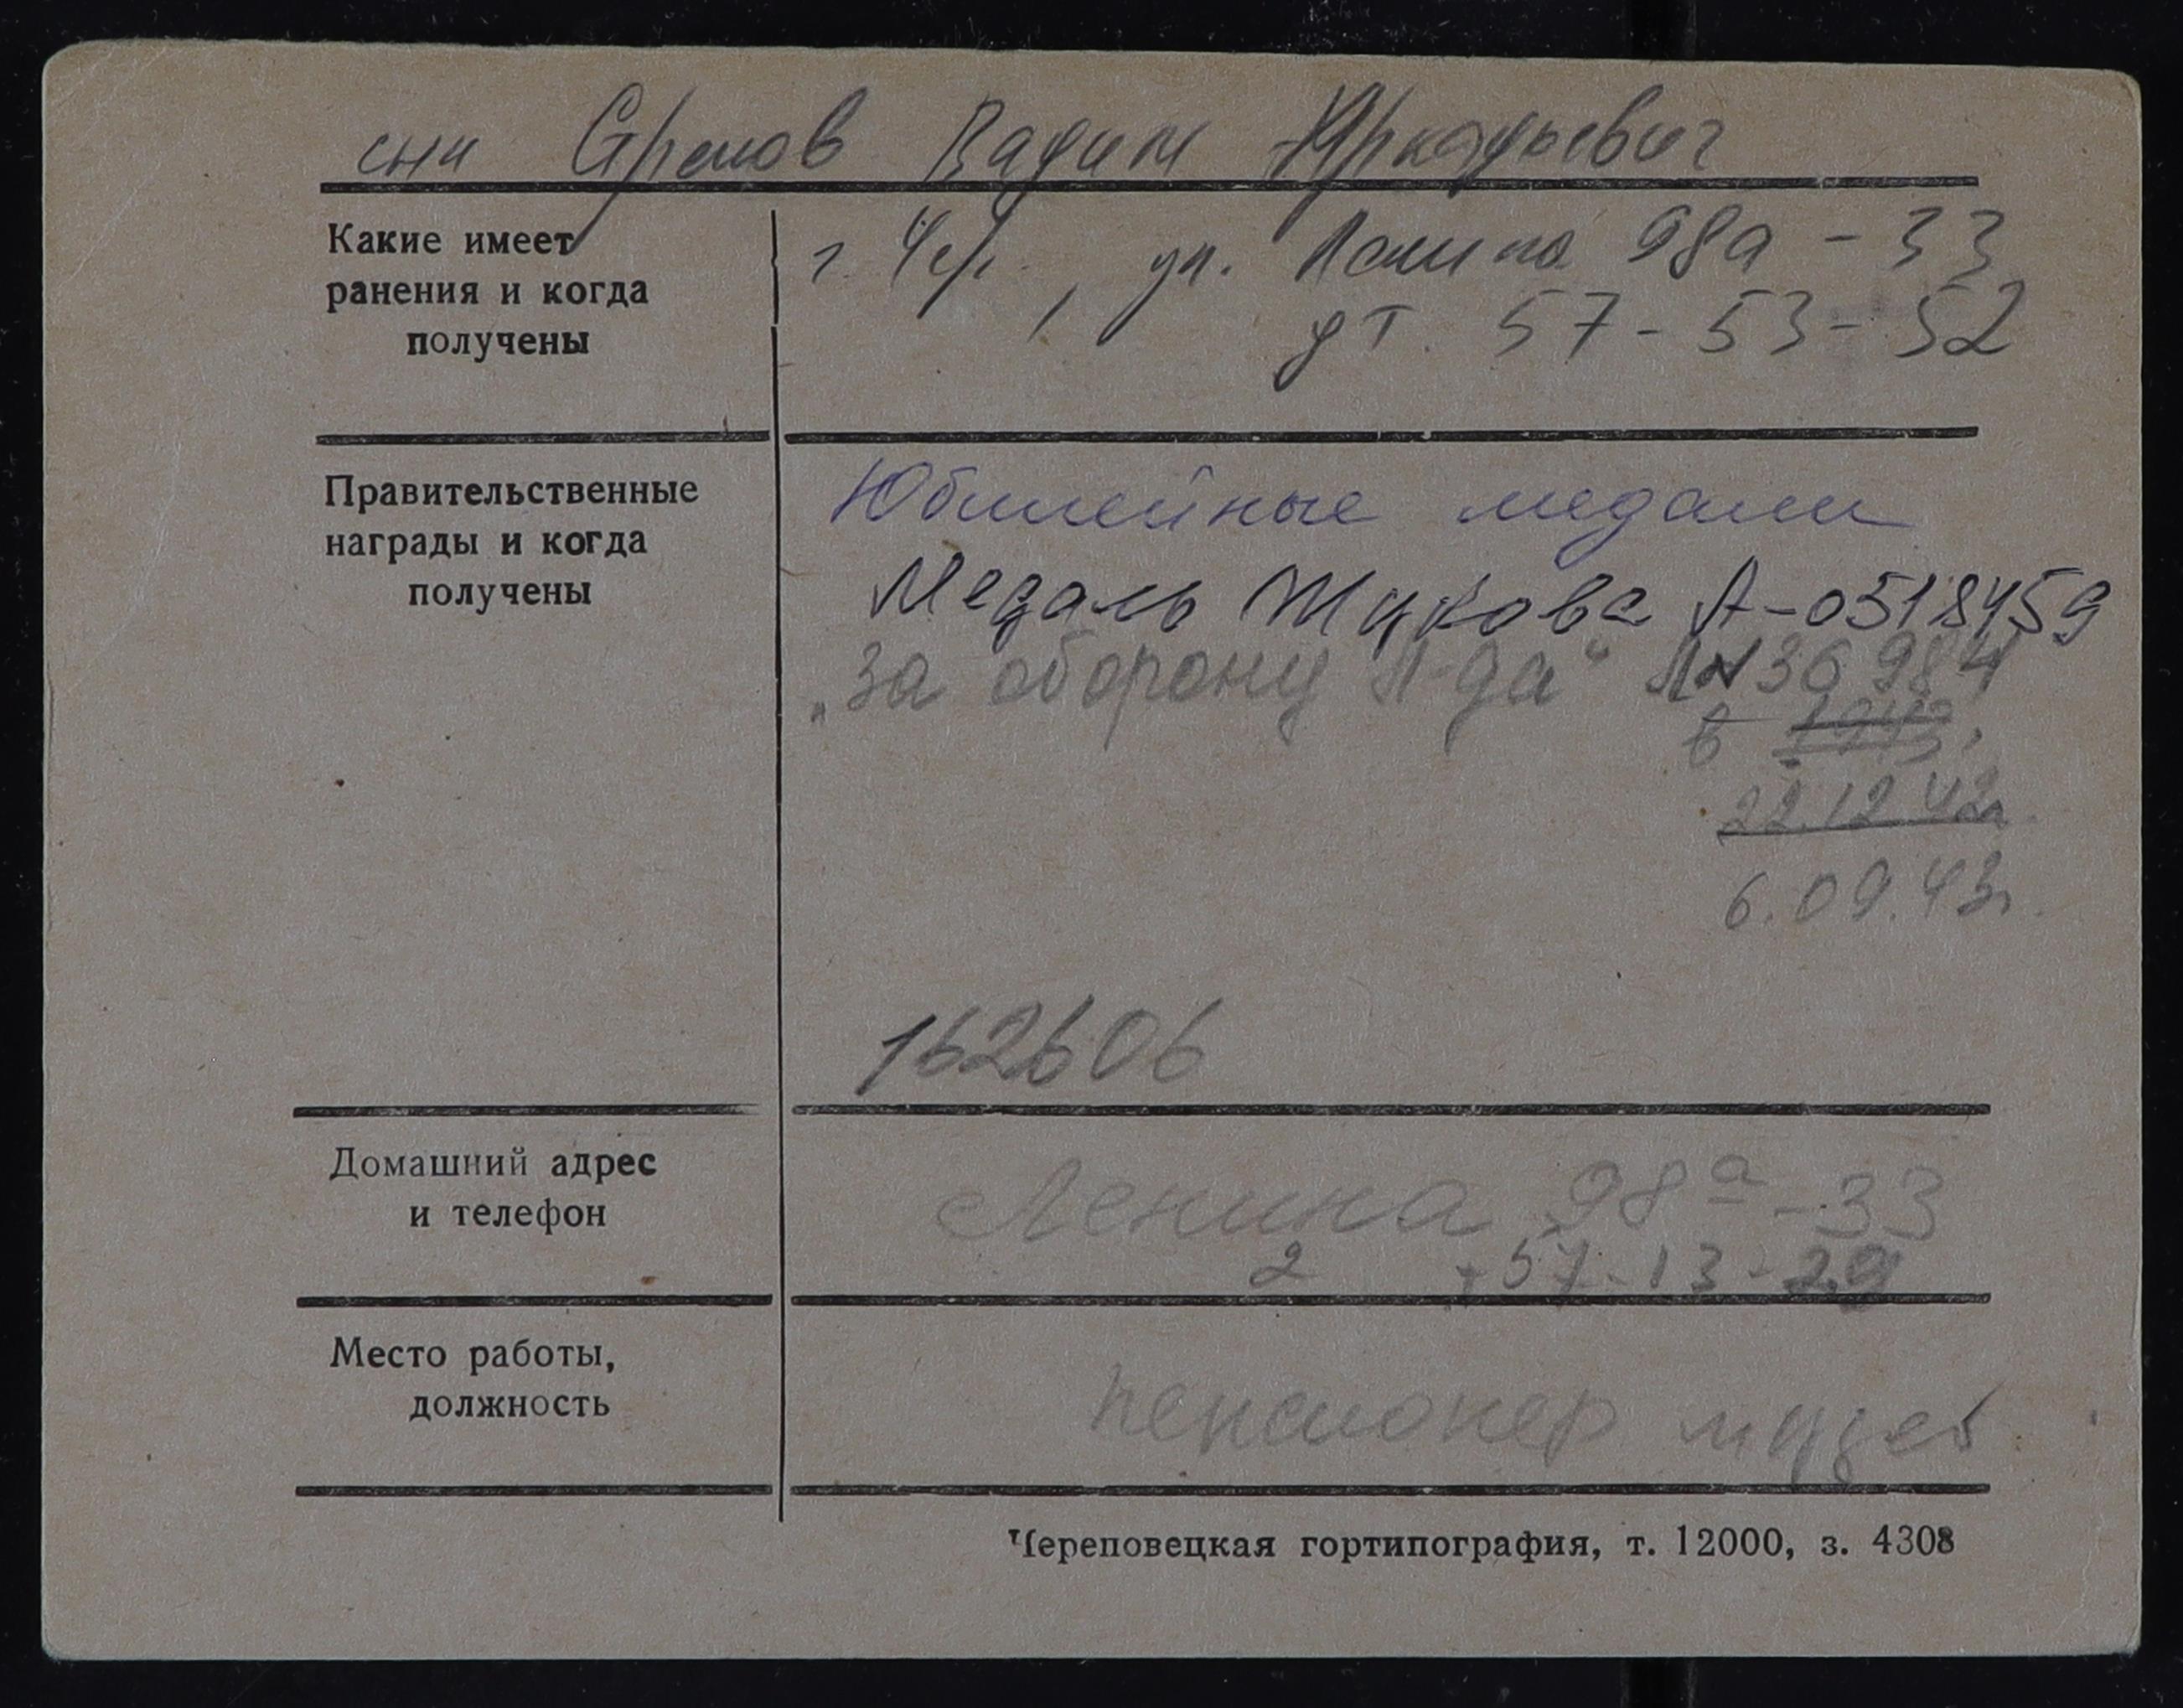 сын Яремов Вадим Аркадьевич
Какие имеет ранения и когда получены
г. Чер., ул. Ленина 98а - 33
дт. 57-53-52
Правительственные награды и когда получены
Юбилейные медали
Медаль Жукова А-0518459
„За оборону Л-да“ ЛN 36984
в 1943
22.12.42г
6.09.43г.
162606
Домашний адрес и телефон
Ленина 98а - 33
2 т 57-13-29
Место работы, должность
пенсионер музей
Череповецкая гортипография, т. 12000, з. 4308